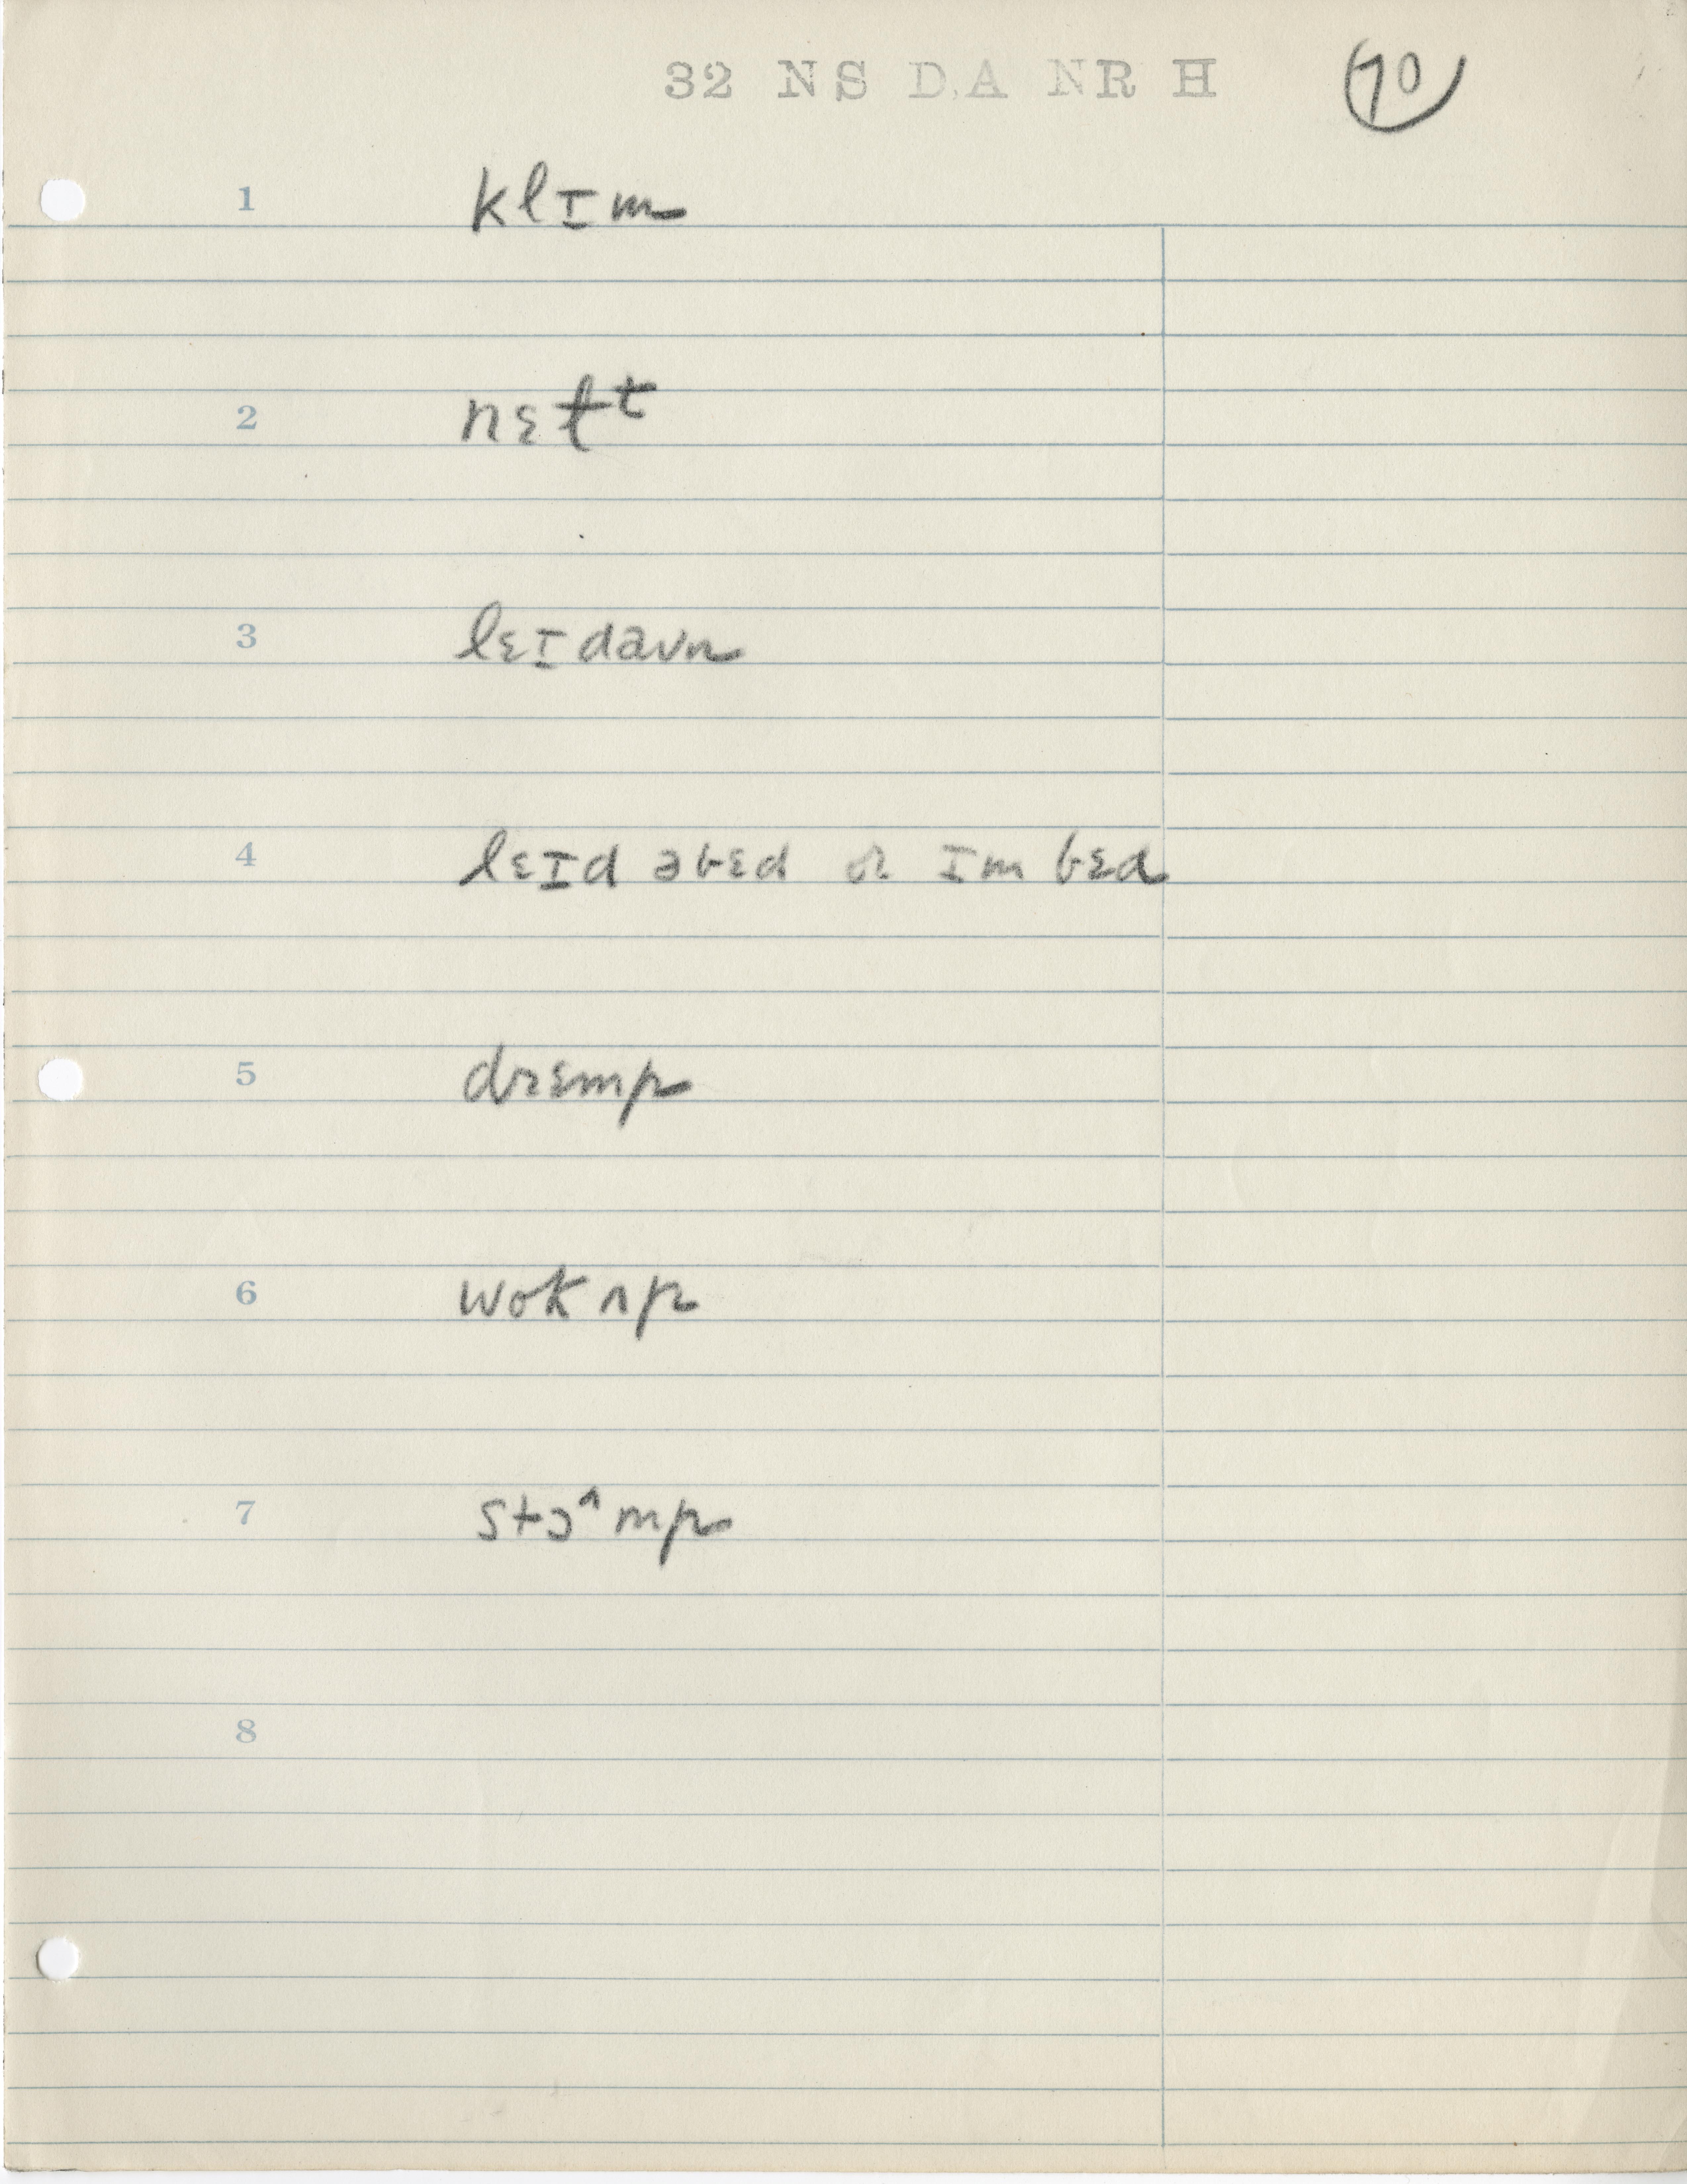 32 NS DA NR H 70
1 klɪm
2 nɛɫᵗ
3 lɛɪdaʊn
4 lɛɪd əbɛd or ɪm bɛd
5 drɛmp
6 wok ʌp
7 stɔ^mp
8